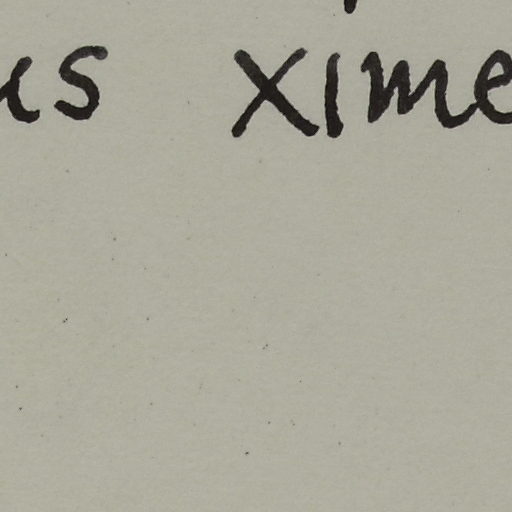 us xime